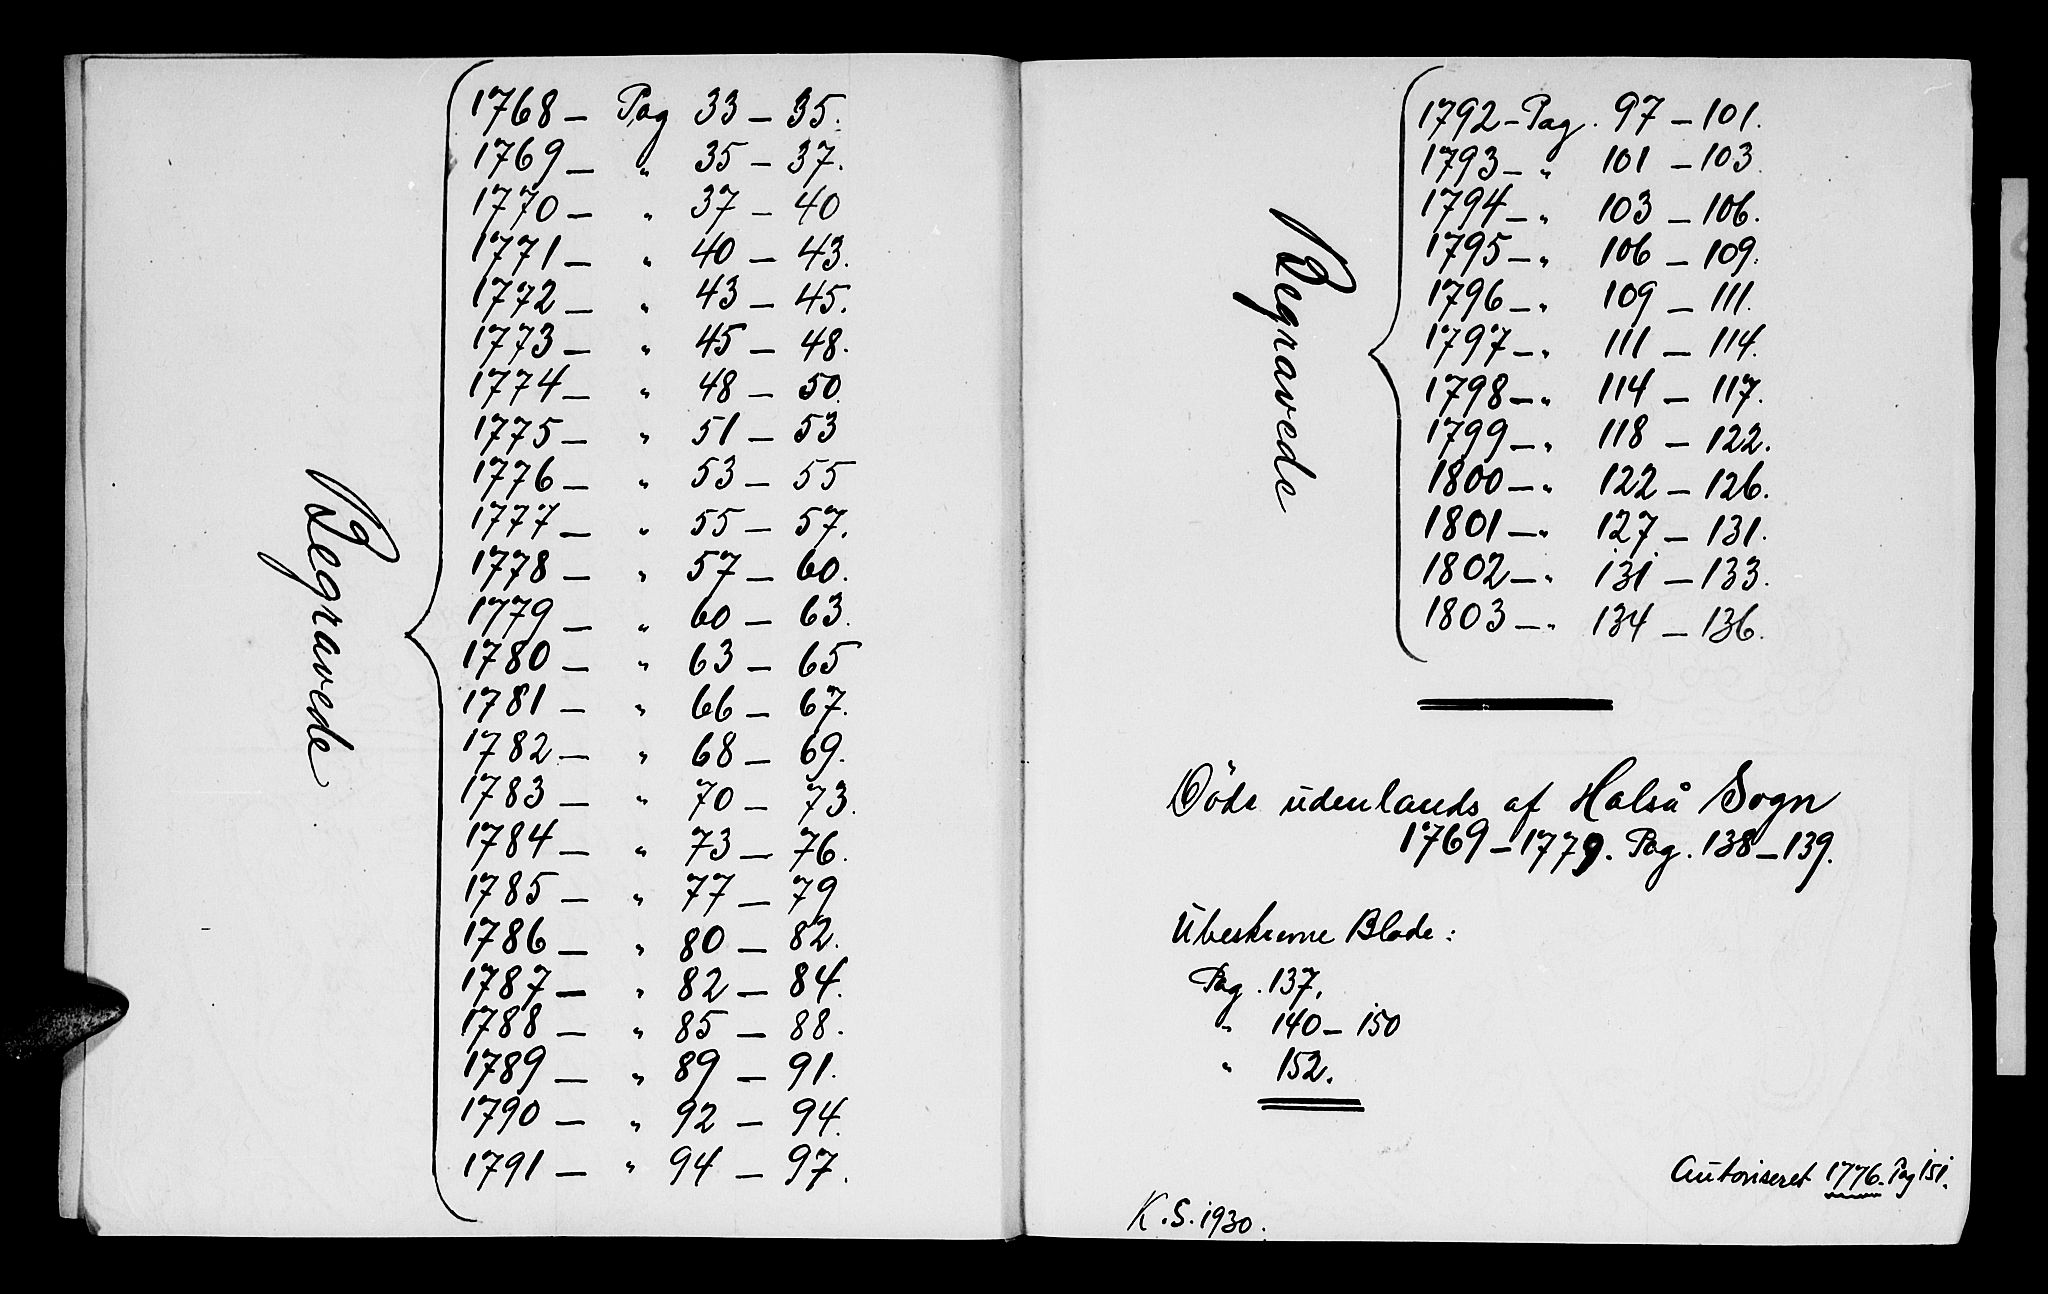 Begravede
1768 – Pag 33 – 35.
1769 – " 35 – 37.
1770 – " 37 – 40
1771 – " 40 – 43.
1772 – " 43 – 45.
1773 – " 45 – 48.
1774 – " 48 – 50.
1775 – " 51 – 53
1776 – " 53 – 55
1777 – " 55 – 57.
1778 – " 57 – 60.
1779 – " 60 – 63.
1780 – " 63 – 65
1781 – " 66 – 67.
1782 – " 68 – 69.
1783 – " 70 – 73.
1784 – " 73 – 76.
1785 – " 77 – 79
1786 – " 80 – 82.
1787 – " 82 – 84.
1788 – " 85 – 88.
1789 – " 89 – 91.
1790 – " 92 – 94.
1791 – " 94 – 97.
Begravede
1792 – Pag. 97 – 101.
1793 – " 101 – 103.
1794 – " 103 – 106.
1795 – " 106 – 109.
1796 – " 109 – 111.
1797 – " 111 – 114.
1798 – " 114 – 117.
1799 – " 118 – 122.
1800 – " 122 – 126.
1801 – " 127 – 131.
1802 – " 131 – 133.
1803 – " 134 – 136.
Döde udenlands af Halså Sogn
1769 – 1779. Pag. 138 – 139.
Ubeskrevne Blade:
Pag. 137.
" 140 – 150
" 152.
Autoriseret 1776. Pag 151.
K.S. 1930.